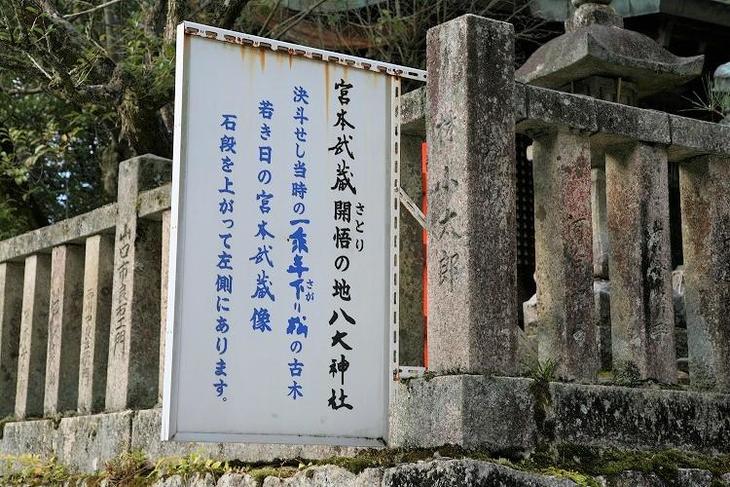 宮本武蔵開悟の地八大神社
さとり
決斗せし当時の一乘寺下り松の古木
さが
若き日の宮本武蔵像
石段を上がって左側にあります。
小太郎
山口市良左エ門